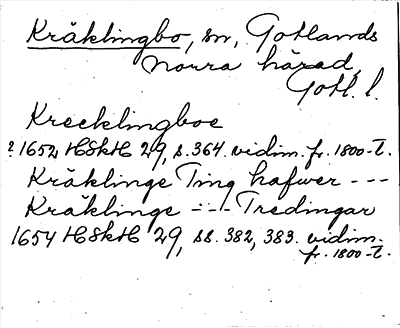 Kräklingbo, sn, Gotlands
norra härad,
Gotl. l.
Krecklingboe
? 1652 HSkH 29, s. 364. vidim. fr. 1800-t.
Kräklinge Ting hafwer ---
Kräklinge --- Tredingar
1654 HSkH 29, ss. 382, 383. vidim.
fr. 1800-t.